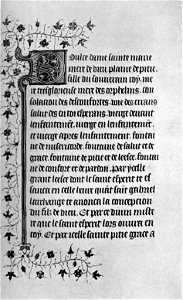 Doulce dame sainte marie
mere de dieu plaine de pitie
fille du souuerain roy me
re tresglorieuse mere des orphelins con
solacion des desconfortes voie des errans
salus des en toy esperans. vierge deuant
lenfantement. vierge en lenfantement
et vierge apres lenfantement. fontaine
de misericorde. fontaine de salus et de
grace. fontaine de pitie et de leesse. fontai
ne de confort et de pardon. par icelle
grant leesse dont le saint esperit
en celle heure quant saint gabriel
larcangele anonca la conception
du filz de dieu. Et par ce diuin mistere
que le saint esperit lors ouura en
toy. Et par celle sainte pitie grace a